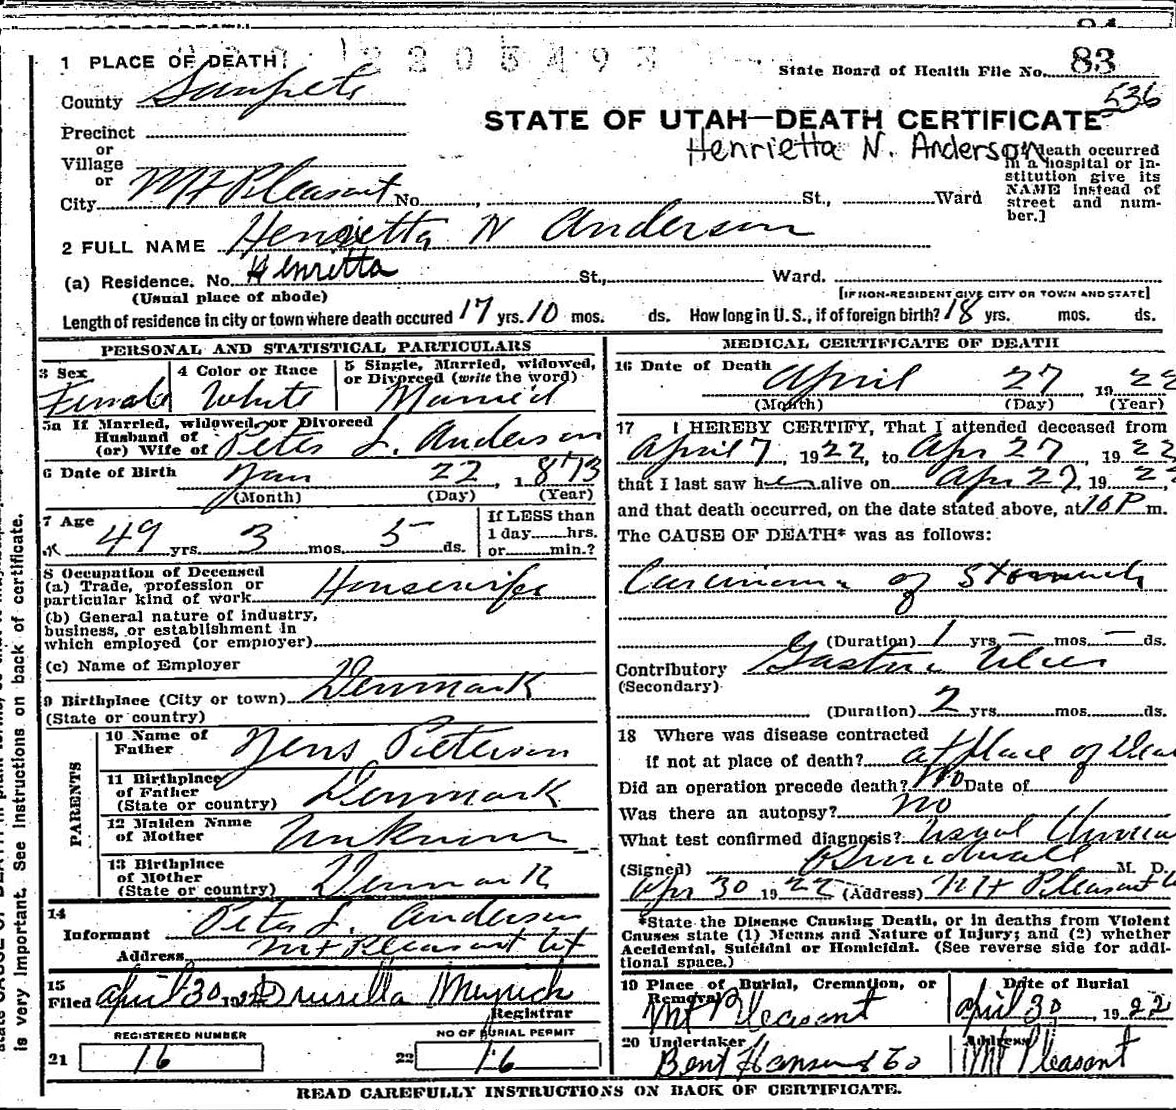 1 PLACE OF DEATH
State Board of Health File No. 83
County Sanpete
536
STATE OF UTAH—DEATH CERTIFICATE
Henrietta N. Anderson
Precinct
or
Village
or
City Mt Pleasant No. , St., Ward
death occurred
in a hospital or in-
stitution give its
NAME instead of
street and num-
ber.]
2 FULL NAME Henrietta N Anderson
Henrietta
(a) Residence. No. St., Ward.
(Usual place of abode)
[IF NON-RESIDENT GIVE CITY OR TOWN AND STATE]
Length of residence in city or town where death occured 17 yrs. 10 mos. ds. How long in U. S., if of foreign birth? 18 yrs. mos. ds.
PERSONAL AND STATISTICAL PARTICULARS
3 Sex
Female
4 Color or Race
White
5 Single, Married, widowed,
or Divorced (write the word)
Married
5a If Married, widowed, or Divorced
Husband of
(or) Wife of Peter L. Anderson
6 Date of Birth Jan 22, 1873
(Month) (Day) (Year)
7 Age
49 yrs. 3 mos. 5 ds.
If LESS than
1 day hrs.
or min.?
8 Occupation of Deceased
(a) Trade, profession or
particular kind of work Housewife
(b) General nature of industry,
business, or establishment in
which employed (or employer)
(c) Name of Employer
9 Birthplace (City or town) Denmark
(State or country)
PARENTS
10 Name of
Father Jens Pieterson
11 Birthplace
of Father
(State or country) Denmark
12 Maiden Name
of Mother Unknown
13 Birthplace
of Mother
(State or country) Denmark
14
Informant Peter L. Anderson
Address Mt Pleasant Ut
15
Filed April 30 1922 Drusilla
Registrar
REGISTERED NUMBER
21 16
NO OF BURIAL PERMIT
22 16
MEDICAL CERTIFICATE OF DEATH
16 Date of Death
April 27 1922
(Month) (Day) (Year)
17 I HEREBY CERTIFY, That I attended deceased from
April 7, 1922, to Apr 27, 1922
that I last saw her alive on Apr 27, 1922
and that death occurred, on the date stated above, at 10 P m.
The CAUSE OF DEATH* was as follows:
Carcinoma of Stomach
(Duration) 1 yrs. — mos. — ds.
Contributory Gastric Ulcer
(Secondary)
(Duration) 2 yrs. mos. ds.
18 Where was disease contracted
if not at place of death? at place of
Did an operation precede death? No Date of
Was there an autopsy? no
What test confirmed diagnosis? usual
(Signed) Sundwall M. D.
Apr 30 1922 (Address) Mt Pleasant
*State the Disease Causing Death, or in deaths from Violent
Causes state (1) Means and Nature of Injury; and (2) whether
Accidental, Suicidal or Homicidal. (See reverse side for addi-
tional space.)
19 Place of Burial, Cremation, or
Removal
Mt Pleasant
Date of Burial
April 30, 1922
20 Undertaker
Bent Hansen & Co
Address
Mt Pleasant
READ CAREFULLY INSTRUCTIONS ON BACK OF CERTIFICATE.
is very important. See instructions on back of certificate.